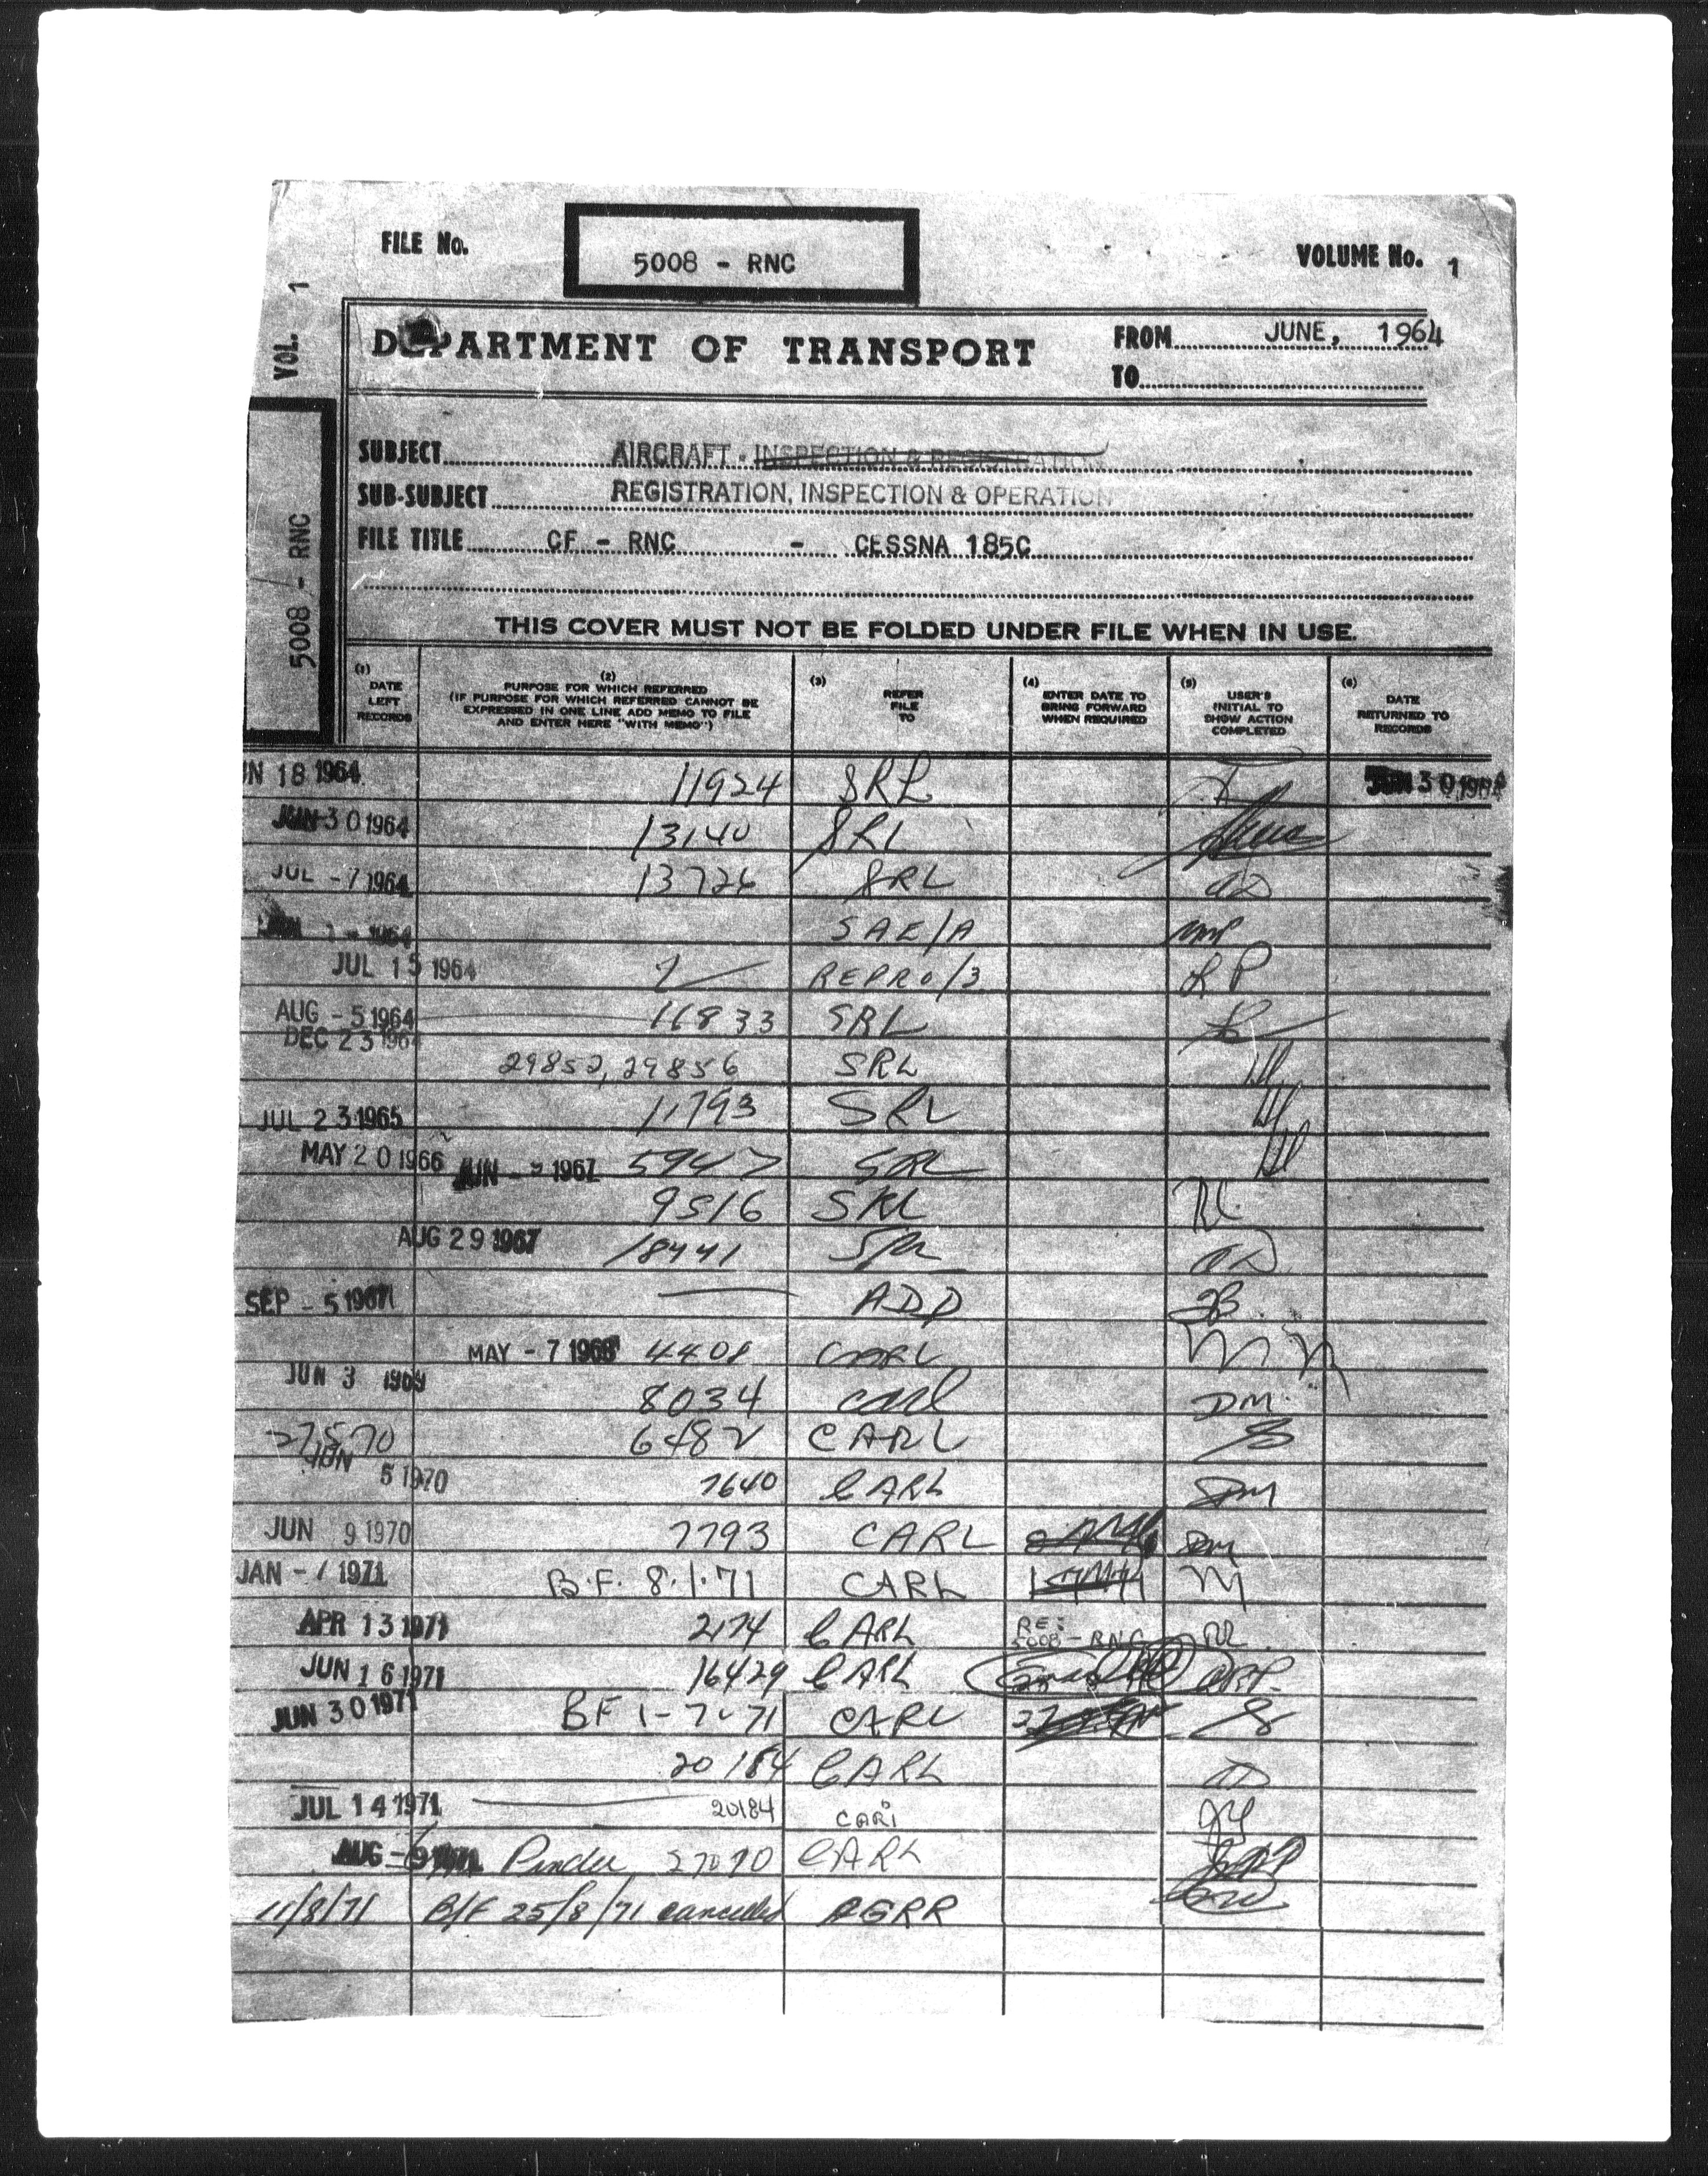 FILE No. 5008 - RNC VOLUME No. 1
VOL. 1
5008 - RNC
DEPARTMENT OF TRANSPORT
FROM JUNE, 1964
TO
SUBJECT AIRCRAFT - INSPECTION & REGISTRATION
SUB-SUBJECT REGISTRATION, INSPECTION & OPERATION
FILE TITLE CF - RNC - CESSNA 185C
THIS COVER MUST NOT BE FOLDED UNDER FILE WHEN IN USE.
(1) DATE LEFT RECORDS
(2) PURPOSE FOR WHICH REFERRED (IF PURPOSE FOR WHICH REFERRED CANNOT BE EXPRESSED IN ONE LINE ADD MEMO TO FILE AND ENTER HERE "WITH MEMO")
(3) REFER FILE TO
(4) ENTER DATE TO BRING FORWARD WHEN REQUIRED
(5) USER'S INITIAL TO SHOW ACTION COMPLETED
(6) DATE RETURNED TO RECORDS
N 18 1964 11924 SRL JUN 30 1964
JUN 30 1964 13140 SRL
JUL - 7 1964 13726 SRL
1964 SAE/A
JUL 15 1964 REPRO/3 LP
AUG - 5 1964 16833 SRL
DEC 23 1964
29852, 29856 SRL
JUL 23 1965 11793 SRL
MAY 20 1966 JUN 1967 5947 SRL
9516 SRL RL
AUG 29 1967 18441 SRL
SEP - 5 1967 ADD
MAY - 7 1968 4408 CARL
JUN 3 1969 8034 carl DM
27 5 70 6482 CARL
JUN 5 1970 7640 CARL
JUN 9 1970 7793 CARL
JAN - 7 1971 B.F. 8.1.71 CARL
APR 13 1971 2174 CARL RE: 5008 - RNC
JUN 16 1971 16429 CARL
JUN 30 1971 BF 1-7-71 CARL
20184 CARL
JUL 14 1971 20184 CARL
AUG - 1971 27090 CARL
11/8/71 B/F 25/8/71 cancelled AGRR